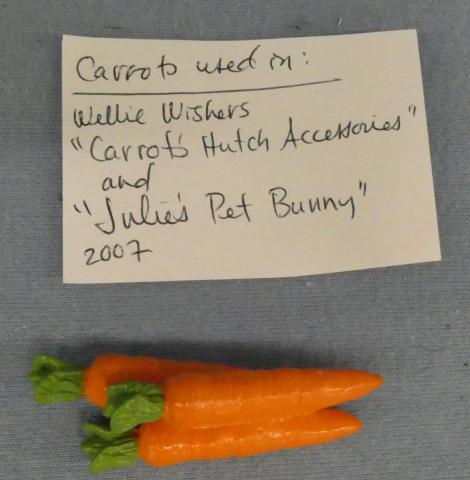 Carrots used in:
Wellie Wishers
"Carrot's Hutch Accessories"
and
"Julie's Pet Bunny"
2007